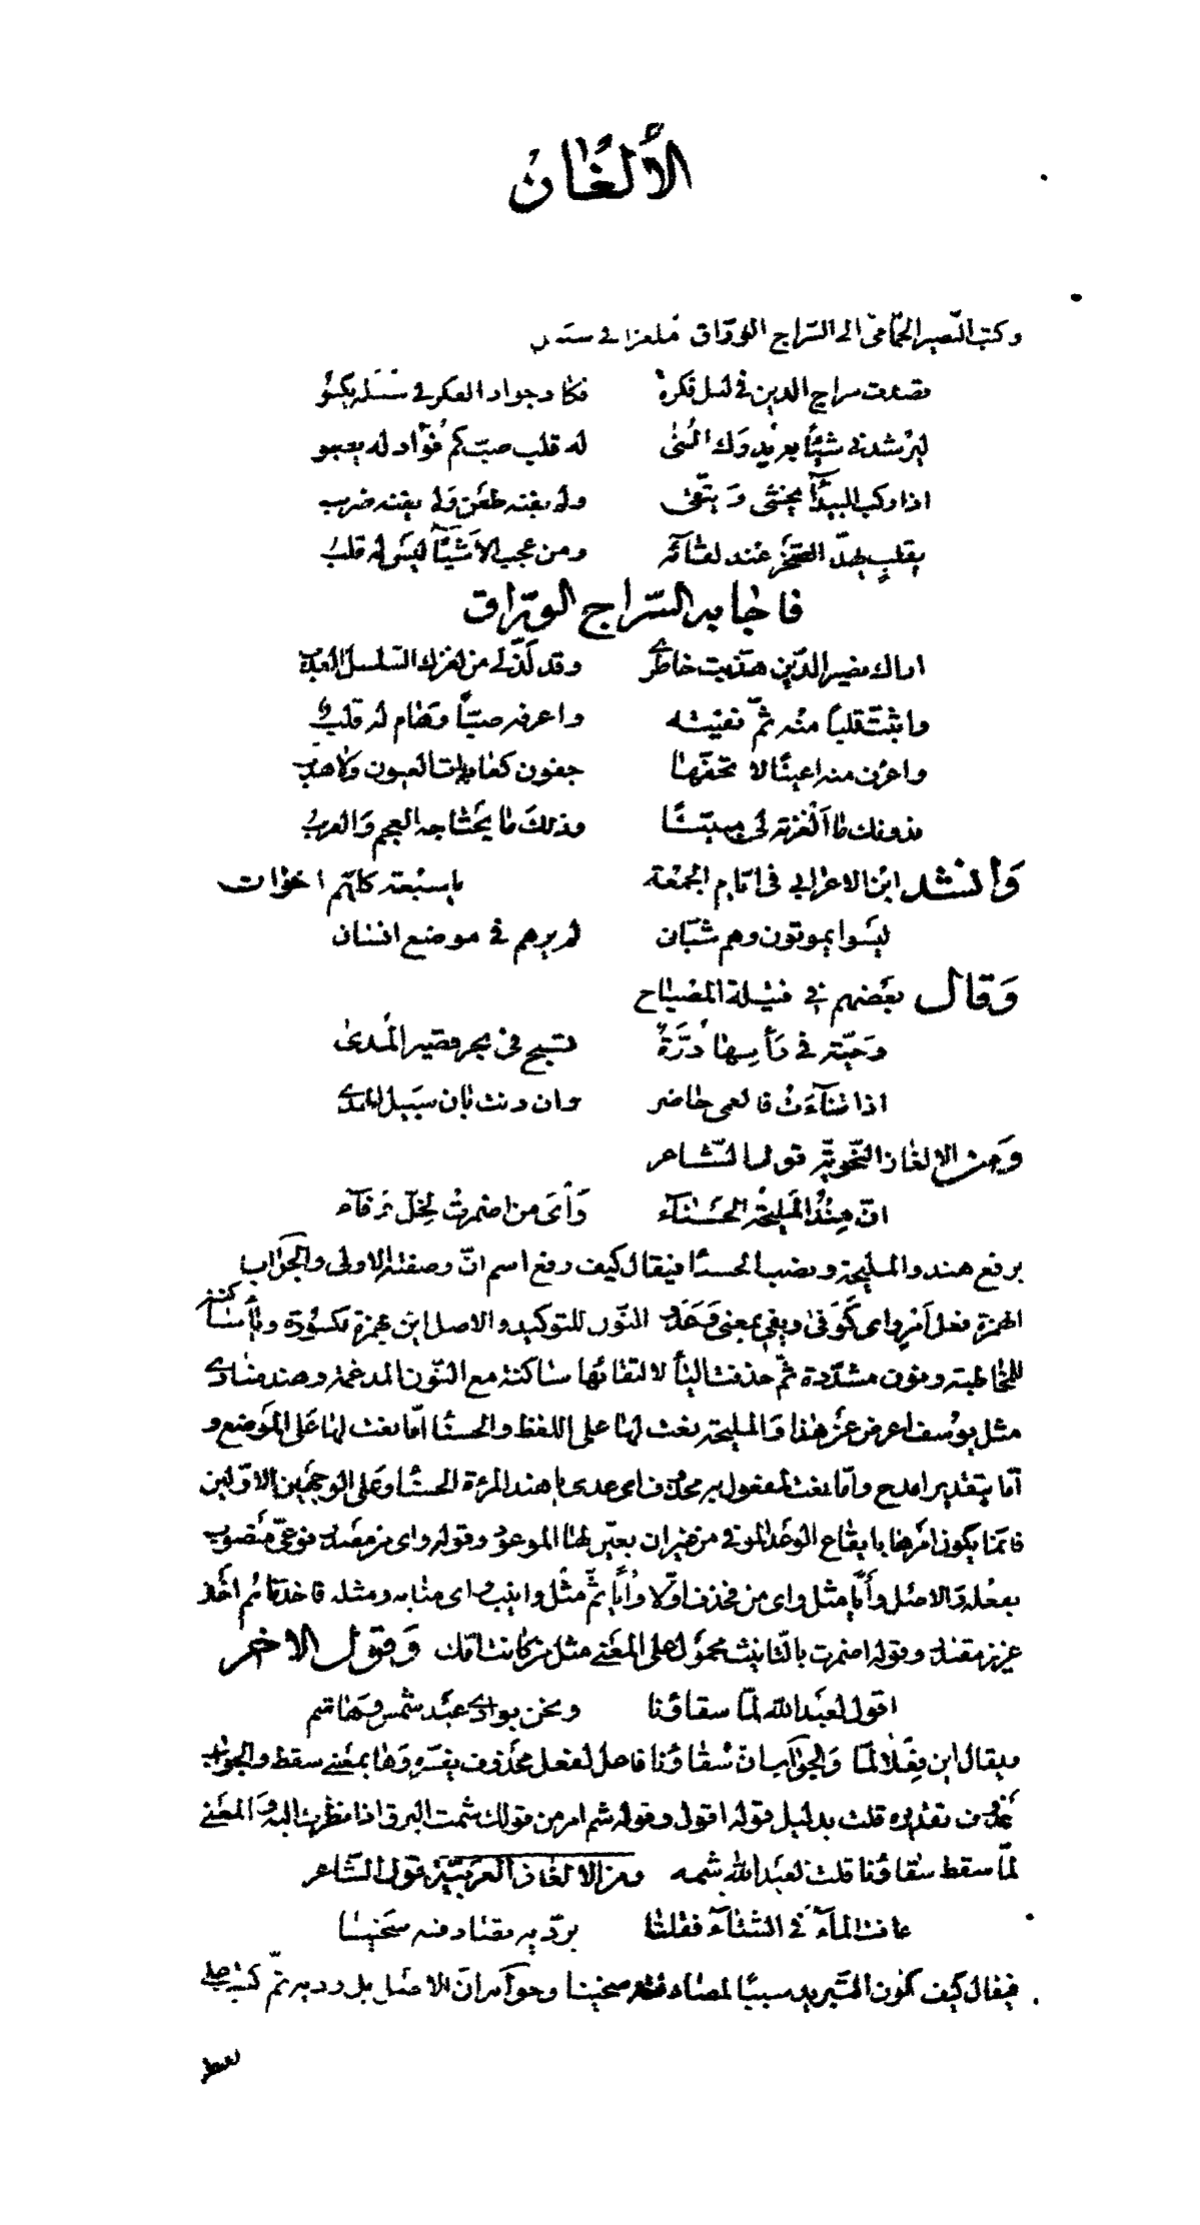 الألغاز
وكتب النصير الحمامي الى السراج الوراق ملغزا في
سراج الدين في ليل فكرة فكاد جواد الفكر في يكبو
ليرشدني شيئا له قلب صب كم فؤاد له يصبو
اذا ركب البيدآ يخشى ويتقى ولم يفته طعن ولم يفته ضرب
بقلب يهد الصخر عند لقائه ومن عجب الاشيآ ليس له قلب
فاجابه السراج الوراق
اراك نصير الدين خاطري وقد لذ لي من لغزك السلسل العذب
واثبت قلبا منه ثم نفيته واعرف صبا له قلب
واعرف منه اعينا لا تحفها جفون العيون ولا هدب
فدونك ما الغزته لي مبينا وذلك ما يحتاجه العجم والعرب
وانشد ابن الاعرابي في ايام الجمعة ما سبعة كلهم اخوات
ليسوا يموتون وهم شبان لم يرهم في موضع انسان
وقال بعضهم في فتيلة المصباح
وحية في رأسها درة تسبح في بحر قصير المدى
اذا تنآءت فالعمى حاضر وان دنت بان سبيل الهدى
ومن الالغاز النحوية قول الشاعر
ان هند المليحة الحسنآء وأى من اضمرت لخل وفآء
برفع هند والمليحة ونصب الحسنا فيقال كيف رفع اسم ان وصفته الاولى والجواب
الهمزة فعل أمر النون للتوكيد والاصل اين بهمزة مكسورة ويا ساكنة
للمخاطبة ونون مشددة ثم حذفت اليا لالتقائها ساكنة مع النون المدغمة وهند منادى
مثل يوسف اعرض عن هذا والمليحة نعت لها على اللفظ والحسنا اما نعت لها على الموضع و
اما بتقدير امدح واما نعت لمفعول به محذوف اى عدى يا هند المرءة الحسنا وعلى الوجهين الاولين
فانما يكون امرها بايقاع الوعد من غير ان يعين لها الموعود وقوله واى مصدر نوعى منصوب
بفعله والاصل وأيا مثل واى من اى مثله فاخذناهم اخذ
عزيز مقتدر وقوله اضمرت بالتانيث محمول على المعنى مثل من كانت امك وقول الاخر
اقول لعبد الله لما سقاؤنا ونحن بوادي عبد شمس وهاشم
فيقال اين فعلا لما والجواب ان سقاؤنا فاعل لفعل محذوف يفسره وها بمعنى سقط والجواب
محذوف تقديره قلت بدليل قوله اقول وقوله شم امر من قولك شمت البرق اذا نظرت اليه والمعنى
لما سقط سقاؤنا قلت لعبد الله شمه ومن الالغاز العربية قول الشاعر
عافت المآء في الشتآء فقلنا برديه تصادفيه سخينا
فيقال كيف يكون التبريد سببا لمصادفته سخينا وجوابه ان الاصل بل رديه ثم كتب على
لفظ